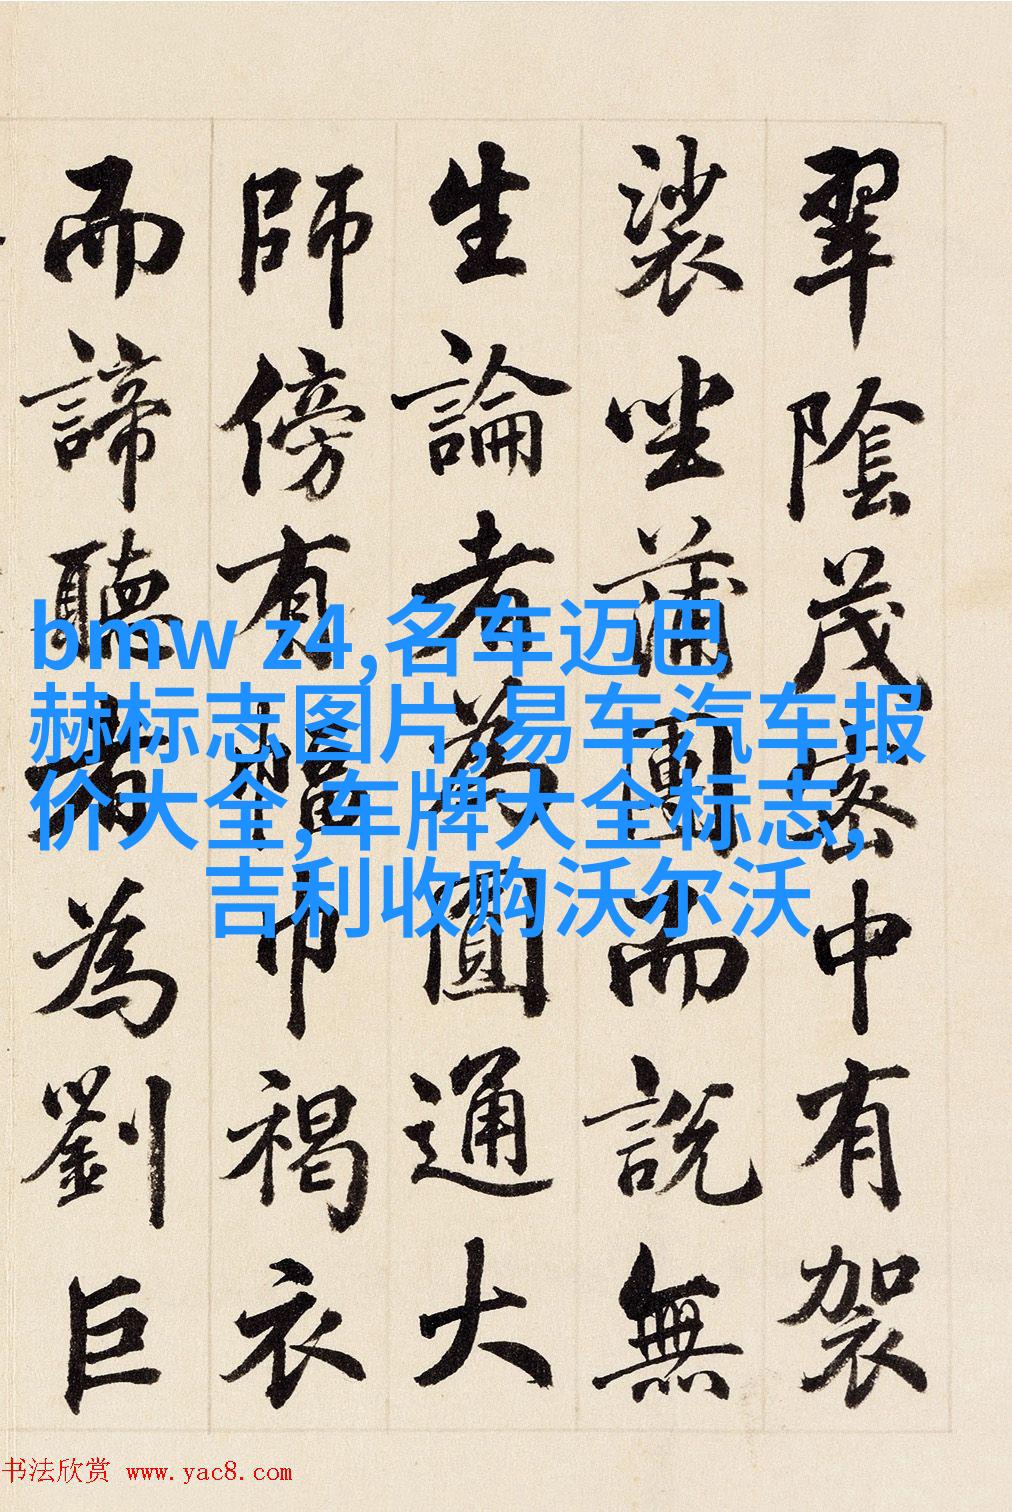 翠陰茂密中有袈
裟坐蒲團而說無
生論者為圓通大
師傍有幅巾褐衣
而諦聽者為劉巨
bmw z4,名车迈巴
赫标志图片,易车汽车报
价大全,车牌大全标志,
吉利收购沃尔沃
书法欣赏 www.yac8.com